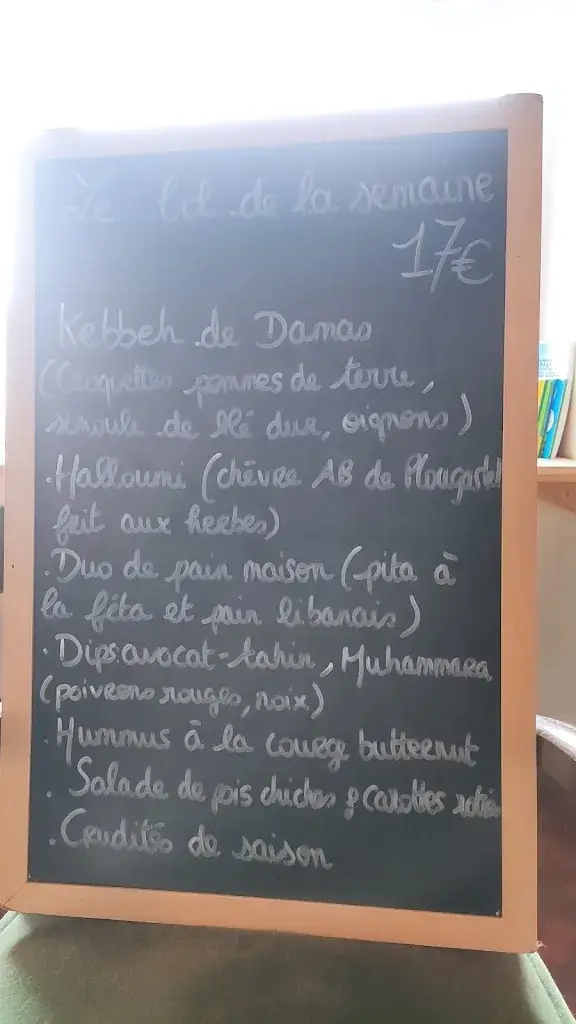 Le bol de la semaine
17€
Kebbeh de Damas
(Croquettes pommes de terre,
semoule de blé dur, oignons)
. Halloumi (chèvre AB de Plougastel
fait aux herbes)
. Duo de pain maison (pita à
la féta et pain libanais)
. Dips: avocat-tahin, Muhammara
(poivrons rouges, noix)
. Hummus à la courge butternut
. Salade de pois chiches & carottes rôties
. Crudités de saison